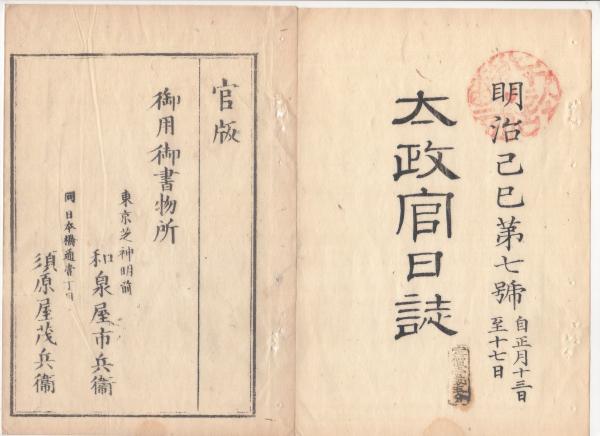 明治己巳第七號
自正月十三日
至十七日
太政官日誌
官版
御用御書物所
東京芝神明前
和泉屋市兵衞
同日本橋通壹丁目
須原屋茂兵衞